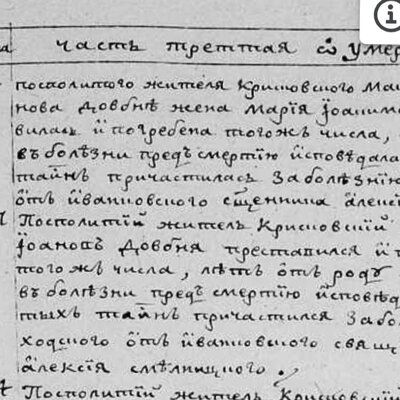 часть треттая ѿ умер
посполитого жителя Крисковского Ма
нова Довбнѣ жена Марїя Іоанимо
вилась и погребена тогожъ числа,
въ болѣзни предъ смертїю исповѣдала
тайнъ причастилась За болѣзнїю
отъ Ивашковского сщенника Алексї
Посполитїй житель Крисковскїй
Іоановъ Довбня преставился и
тогожъ числа, лѣтъ отъ роду
въ болѣзни предъ смертїю исповѣд
тыхъ тайнъ причастился За бол
ходского отъ Ивашковского свящ
Алексїя Смѣлницкого.
Посполитїй житель Крисковскїй